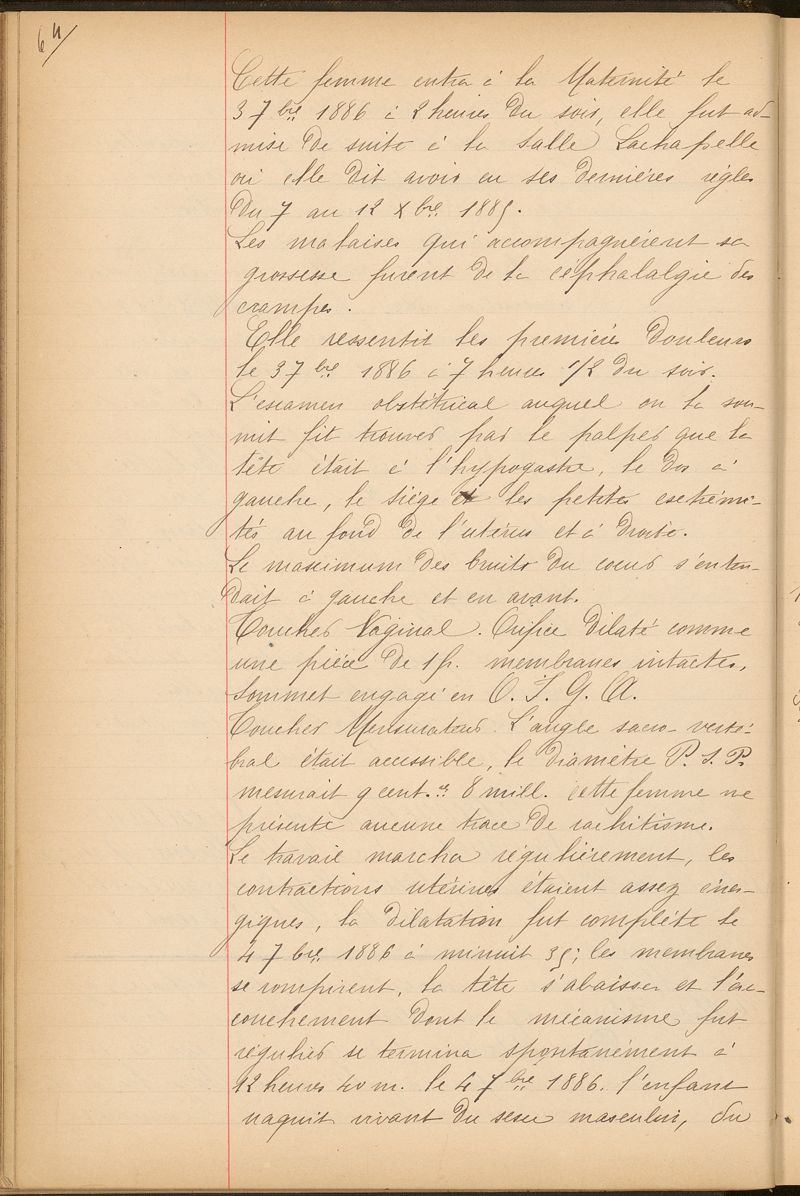 64/
Cette femme entra à la Maternité le
3 7bre 1886 à 2 heures du soir, elle fut ad-
mise de suite à la salle Lachapelle
où elle dit avoir eu ses dernières règles
du 7 au 12 Xbre 1885.
Les malaises qui accompagnèrent sa
grossesse furent de la céphalalgie des
crampes.
Elle ressentit les premières douleurs
le 3 7bre 1886 à 7 heures 1/2 du soir.
L'examen obstétrical auquel on la sou-
mit fit trouver par le palper que la
tête était à l'hypogastre, le dos à
gauche, le siège et les petites extrémi-
tés au fond de l'utérus et à droite.
Le maximum des bruits du coeur s'enten-
dait à gauche et en avant.
Toucher Vaginal. Orifice dilaté comme
une pièce de 1 f. membranes intactes,
sommet engagé en O. I. G. A.
Toucher Mensurateur. L'angle sacro-verté-
bral était accessible, le diamètre P. S. P.
mesurait 9 cent. 8 mill. cette femme ne
présente aucune trace de rachitisme.
Le travail marcha régulièrement, les
contractions utérines étaient assez éner-
giques, la dilatation fut complète le
4 7bre 1886 à minuit 35; les membranes
se rompirent, la tête s'abaissa et l'ac-
couchement dont le mécanisme fut
régulier se termina spontanément à
12 heures 40 m. le 4 7bre 1886. l'enfant
naquit vivant du sexe masculin, du